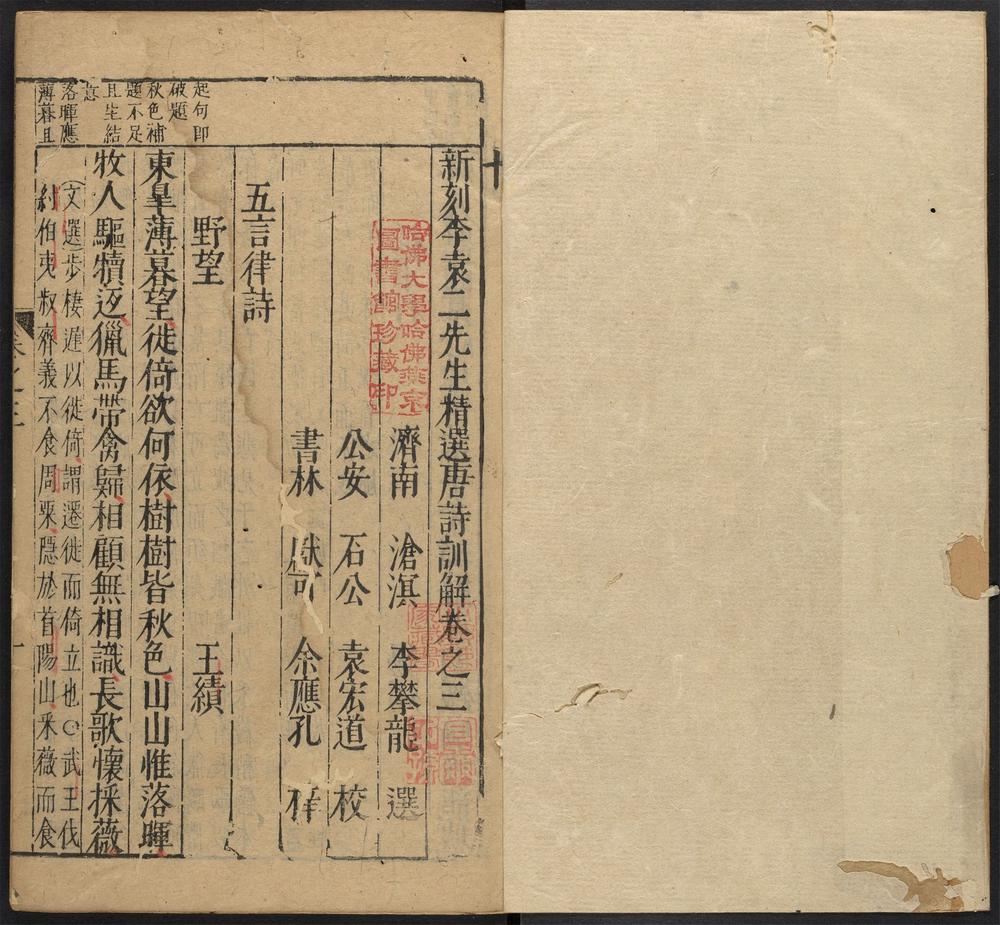 新刻李袁二先生精選唐詩訓解卷之三
濟南 滄溟 李攀龍 選
公安 石公 袁宏道 校
書林 獻可 余應孔 梓
五言律詩
野望 王績
東皐薄暮望徙倚欲何依樹樹皆秋色山山惟落暉
牧人驅犢返獵馬帶禽歸相顧無相識長歌懷採薇
文選步棲遲以徙倚謂遷徙而倚立也○武王伐
紂伯夷叔齊義不食周粟隱於首陽山采薇而食
起句即
破題
秋色補
題不足
且生結
意
落暉應
薄暮且
哈佛大學哈佛燕京
圖書館珍藏印